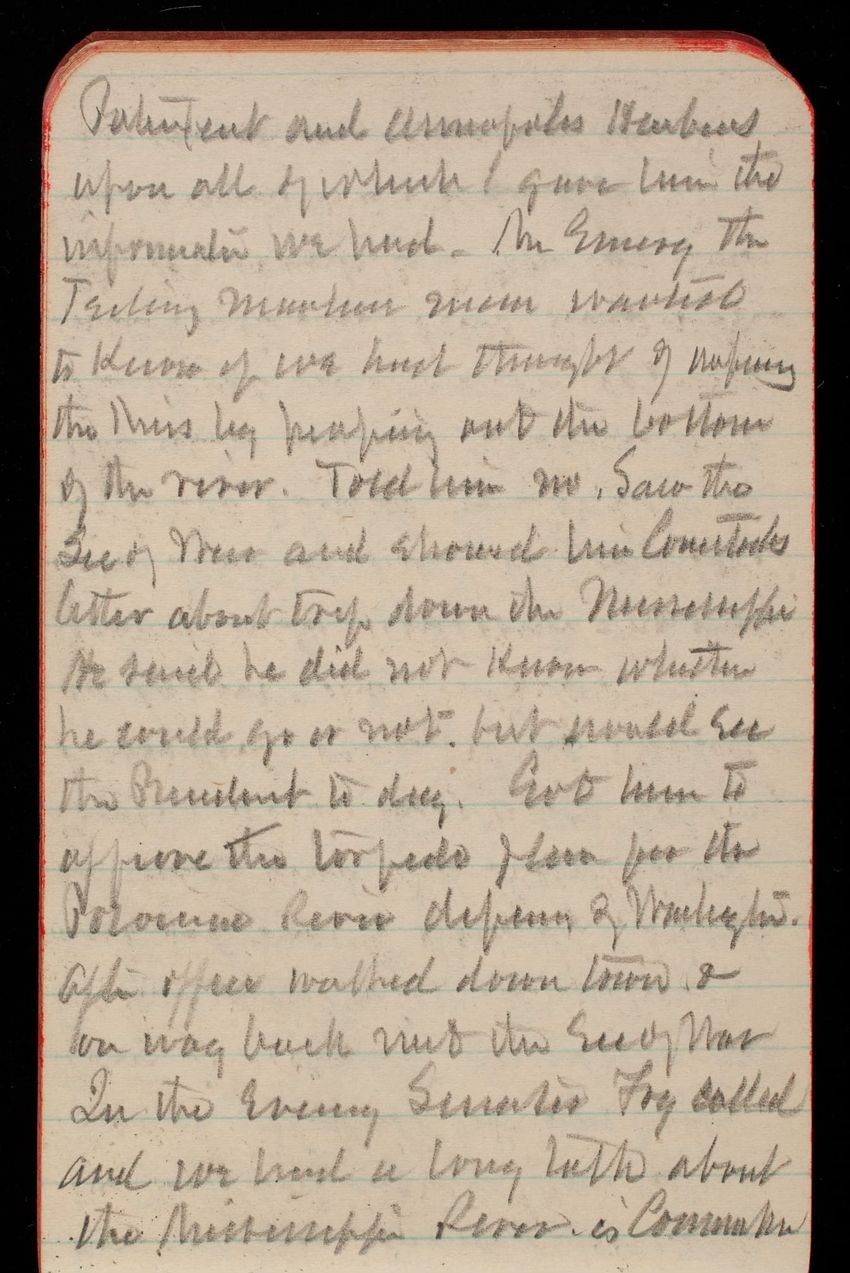 Patuxent and Annapolis Harbors
upon all of which I gave him the
information we had. Mr Emery the
Testing Machine man wanted
to Know if we had thought of
the Miss by out the bottom
of the river. Told him no. Saw the
Sec of War and showed him Comstocks
letter about trip down the Mississippi
He said he did not Know whether
he could go or not, but would see
the President to day. Got him to
approve the torpedo plan for the
Potomac River defense of Washington.
After office walked down town &
on way back met the Sec of War
In the Evening Senator Frye called
and we had a long talk about
the Mississippi River. is